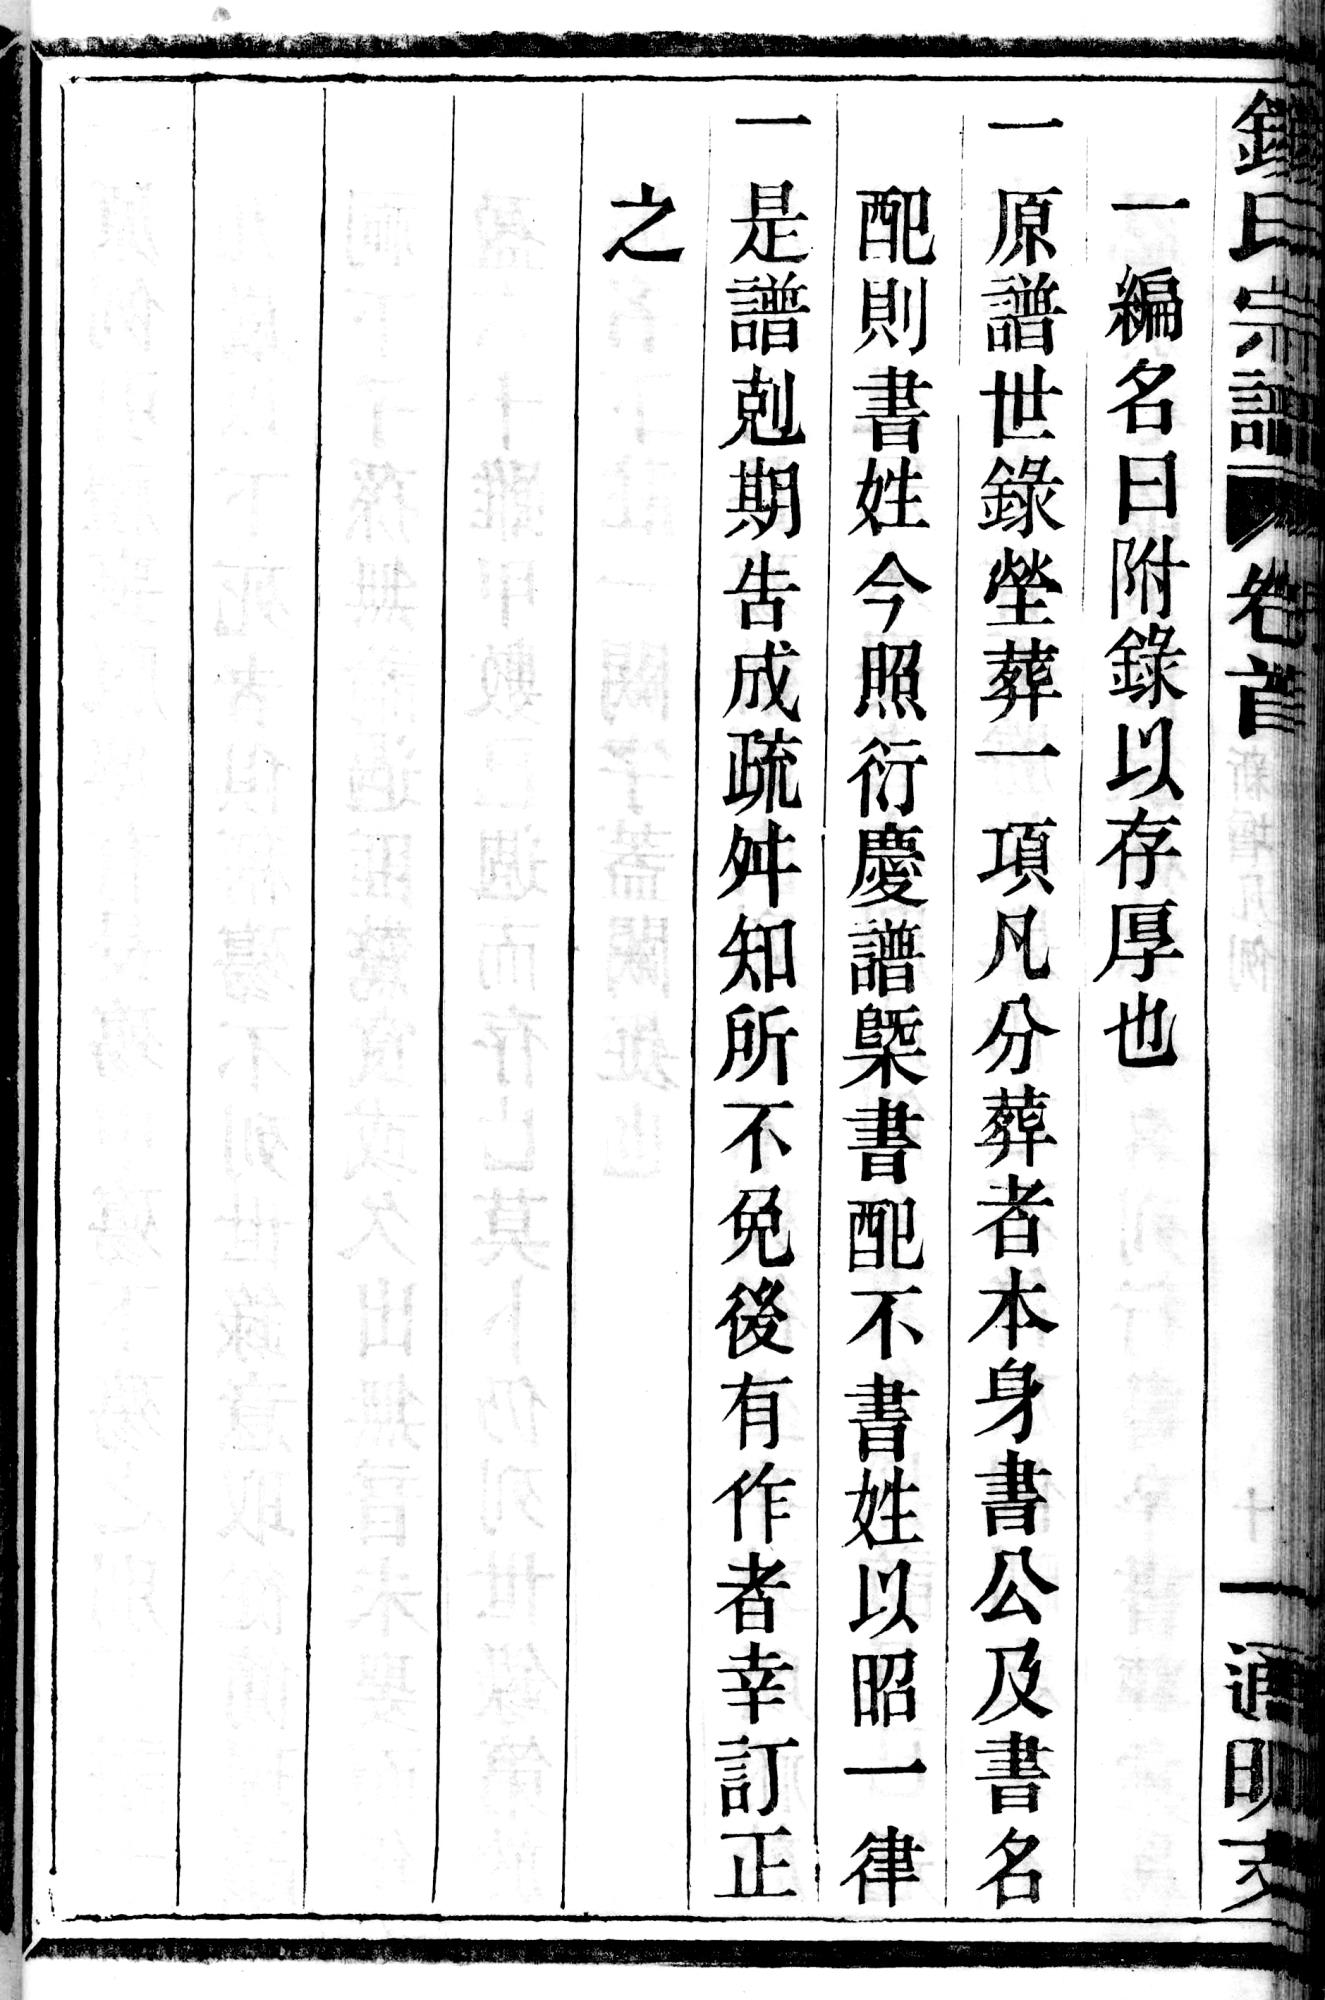 錢氏宗譜 卷首 通明支
一編名曰附錄以存厚也
一原譜世錄塋葬一項凡分葬者本身書公及書名
配則書姓今照衍慶譜槩書配不書姓以昭一律
一是譜剋期告成疏舛知所不免後有作者幸訂正
之